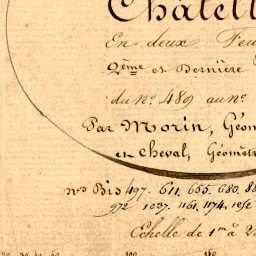 Châtell
En deux Feu
2ème et Dernière
du No. 489 au no.
Par Morin, Géom
et cheval, Géomètr
nos Bis 497. 611. 655. 680. 88
972 1037. 1161. 1174.
Echelle de 1m à